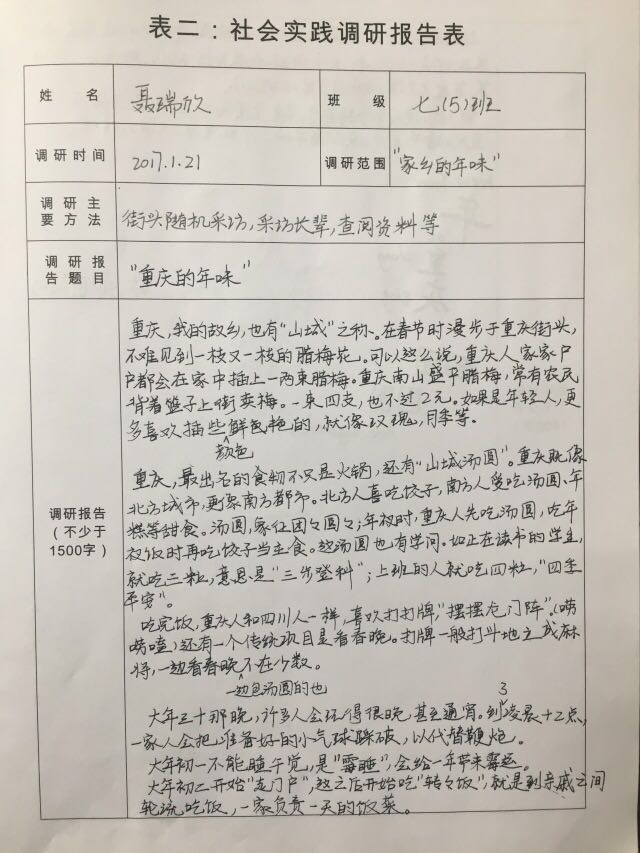 表二：社会实践调研报告表
姓 名 聂瑞欣 班 级 七（5）班
调研时间 2017.1.21 调研范围 "家乡的年味"
调研主要方法 街头随机采访，采访长辈，查阅资料等
调研报告题目 "重庆的年味"
调研报告（不少于1500字）
重庆，我的故乡，也有"山城"之称。在春节时漫步于重庆街头，
不难见到一枝又一枝的腊梅花。可以这么说，重庆人家家户
户都会在家中插上一两束腊梅。重庆南山盛产腊梅，常有农民
背着篮子上街卖梅。一束四支，也不过2元。如果是年轻人，更
多喜欢插些鲜艳的，就像玫瑰，月季等。
颜色
重庆，最出名的食物不只是火锅，还有"山城汤圆"。重庆既像
北方城市，更象南方都市。北方人喜吃饺子，南方人爱吃汤圆、年
糕等甜食。汤圆，象征团々圆々；年夜时，重庆人先吃汤圆，吃年
夜饭时再吃饺子当主食。这汤圆也有学问。如正在读书的学生，
就吃三粒，意思是"三步登科"；上班的人就吃四粒，"四季
平安"。
吃完饭，重庆人和四川人一样，喜欢打打牌，"摆摆龙门阵"（唠
唠嗑）还有一个传统项目是看春晚。打牌一般打斗地主或麻
将，一边看春晚不在少数。
一边包汤圆的也
3
大年三十那晚，许多人会玩得很晚甚至通宵。到凌晨十二点，
一家人会把准备好的小气球踩破，以代替鞭炮。
大年初一不能睡午觉，是"霉睡"，会给一年带来霉运。
大年初二开始"走门户"，这之后开始吃"转々饭"，就是到亲戚之间
轮流吃饭，一家负责一天的饭菜。